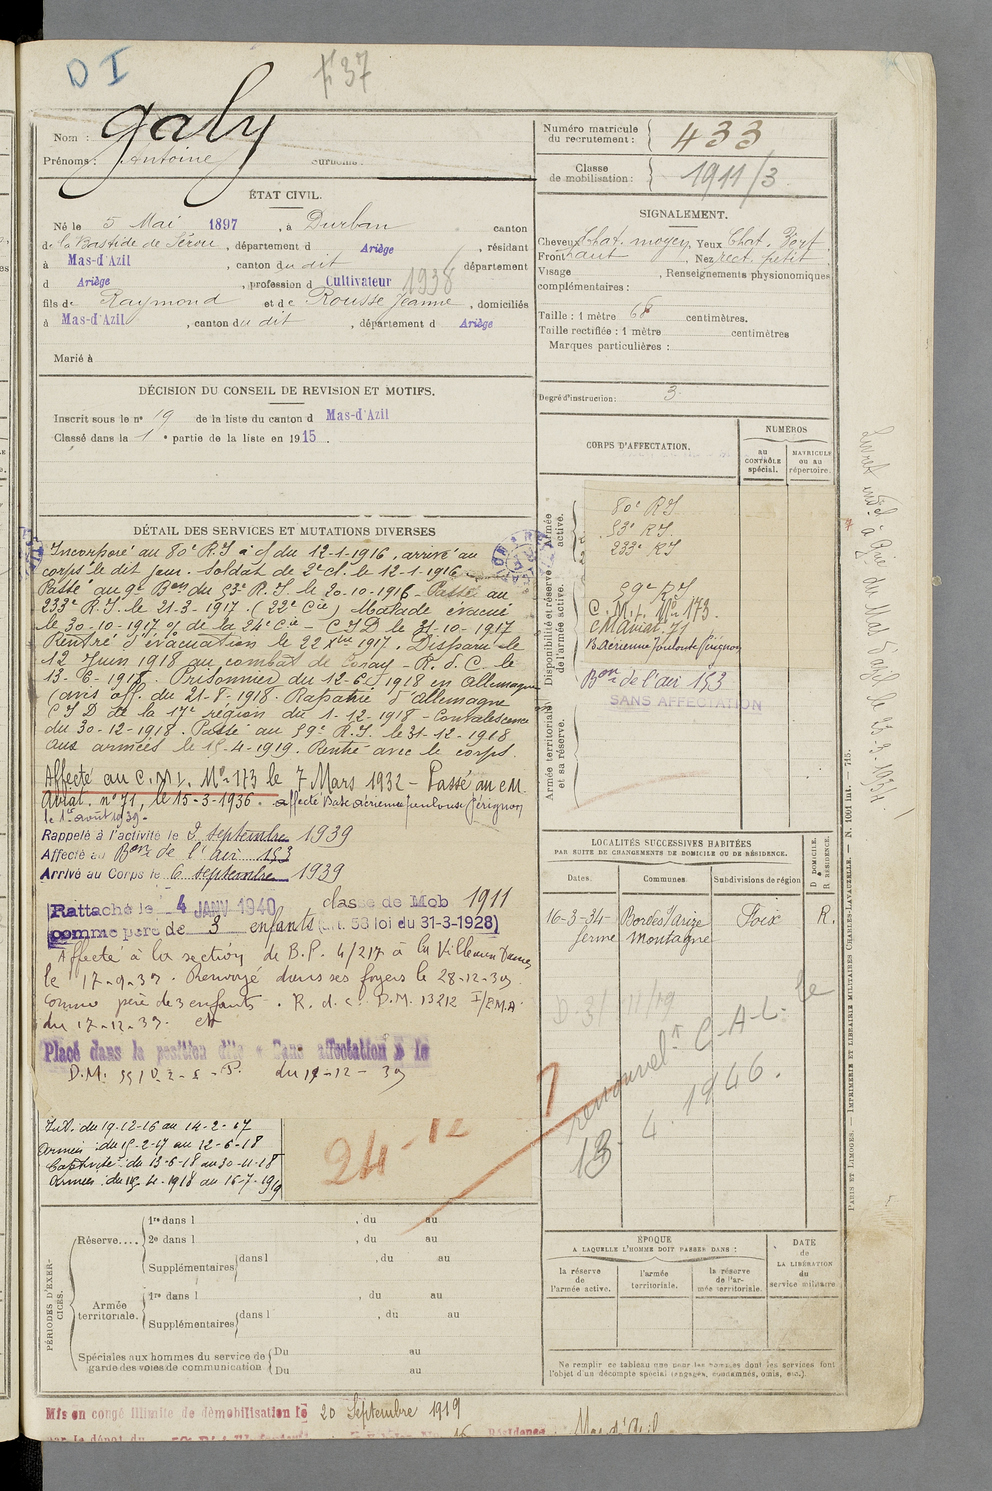 D I
437
Nom : Galy
Prénoms : Antoine Surnoms :
Numéro matricule du recrutement : 433
Classe de mobilisation : 1911/3
ÉTAT CIVIL.
Né le 5 Mai 1897, à Durban canton
de la Bastide de Sérou, département d Ariège, résidant
à Mas-d'Azil, canton du dit département
d Ariège, profession d Cultivateur 1938
fils de Raymond et de Rousse Jeanne, domiciliés
à Mas-d'Azil, canton du dit, département d Ariège
Marié à
SIGNALEMENT.
Cheveux Chat. moyen Yeux Chat. Forf
Front haut Nez rect. petit
Visage , Renseignements physionomiques
complémentaires :
Taille : 1 mètre 68 centimètres.
Taille rectifiée : 1 mètre centimètres
Marques particulières :
Degré d'instruction : 3
DÉCISION DU CONSEIL DE REVISION ET MOTIFS.
Inscrit sous le nº 19 de la liste du canton d Mas-d'Azil
Classé dans la 1e partie de la liste en 1915.
DÉTAIL DES SERVICES ET MUTATIONS DIVERSES
Incorporé au 80e R.I à c/ du 12-1-1916, arrivé au
corps le dit jour. Soldat de 2e cl. le 12-1-1916
Passé au 9e Bon du 53e R.I. le 20-10-1916 - Passé au
233e R.I. le 21-3-1917. (22e Cie) Malade évacué
le 30-10-1917 of de la 24e Cie - CID le 31-10-1917
Rentré d'évacuation le 22 Xbre 1917. Disparu le
12 Juin 1918 au combat de - R. d. C. le
13-6-1918. Prisonnier du 12-6-1918 en Allemagne
(avis off. du 21-8-1918. Rapatrié d'Allemagne
CID de la 17e région du 1-12-1918 - Convalescence
du 30-12-1918. Passé au 59e R.I. le 31-12-1918
aux armées le 15-4-1919. Rentré avec le corps.
Affecté au C.M.I. No 173 le 7 Mars 1932 - Passé au CM
Aviat. nº 71, le 15-3-1936. affecté Base aérienne Toulouse Pérignon
le 1er août 1939.
Rappelé à l'activité le 2 septembre 1939
Affecté au Bon de l'air 153
Arrivé au Corps le 6 septembre 1939
Rattaché le 4 JANV 1940 classe de Mob 1911
comme père de 3 enfants (art. 58 loi du 31-3-1928)
Affecté à la section de B.P. 4/217 à la Villemur
le 17-9-39. Renvoyé dans ses foyers le 28-12-39
comme père de 3 enfants. R. d. c. D.M. 13212 I/EMA.
du 17-12-39.
Placé dans la position dite « Sans affectation » le
D.M. du 17-12-39
Int. du 19-12-16 au 14-2-17
Armées : du 15-2-17 au 12-6-18
Captivité : du 13-6-18 au 30-11-18
Armées : du 15-4-1918 au 16-7-1919
24-12
CORPS D'AFFECTATION.
NUMÉROS
au CONTRÔLE spécial.
MATRICULE ou au répertoire.
Armée active.
80e RI.
53e RI.
233e RI
Disponibilité et réserve de l'armée active.
59e RI
C.M.I. No 173.
C.M aviat. 71
B. Aérienne Toulouse Pérignon
Bon de l'air 153
SANS AFFECTATION
Armée territoriale et sa réserve.
LOCALITÉS SUCCESSIVES HABITÉES
PAR SUITE DE CHANGEMENTS DE DOMICILE OU DE RÉSIDENCE.
D DOMICILE. R RÉSIDENCE.
Dates. Communes. Subdivisions de région
16-3-34 - Bordes s/arize Foix R.
ferme Montagne
D.3/ 11/19
renouvelt C-A-L. le
13. 4. 1946.
PÉRIODES D'EXERCICES.
Réserve.... 1re dans l , du au
2e dans l , du au
Supplémentaires dans l , du au
Armée territoriale. 1re dans l , du au
Supplémentaires dans l , du au
Spéciales aux hommes du service de garde des voies de communication Du au
Du au
ÉPOQUE
A LAQUELLE L'HOMME DOIT PASSER DANS :
la réserve de l'armée active.
l'armée territoriale.
la réserve de l'armée territoriale.
DATE de LA LIBÉRATION du service militaire.
Ne remplir ce tableau que pour les hommes dont les services font
l'objet d'un décompte spécial (engagés, condamnés, omis, etc.).
Mis en congé illimité de démobilisation le 20 Septembre 1919
par le dépôt du Résidence Mas d'Azil
Livret indel à Gie du Mas d'azil le 23-9-1934
PARIS ET LIMOGES. — IMPRIMERIE ET LIBRAIRIE MILITAIRES CHARLES-LAVAUZELLE. — N. 1001 int. — 715.